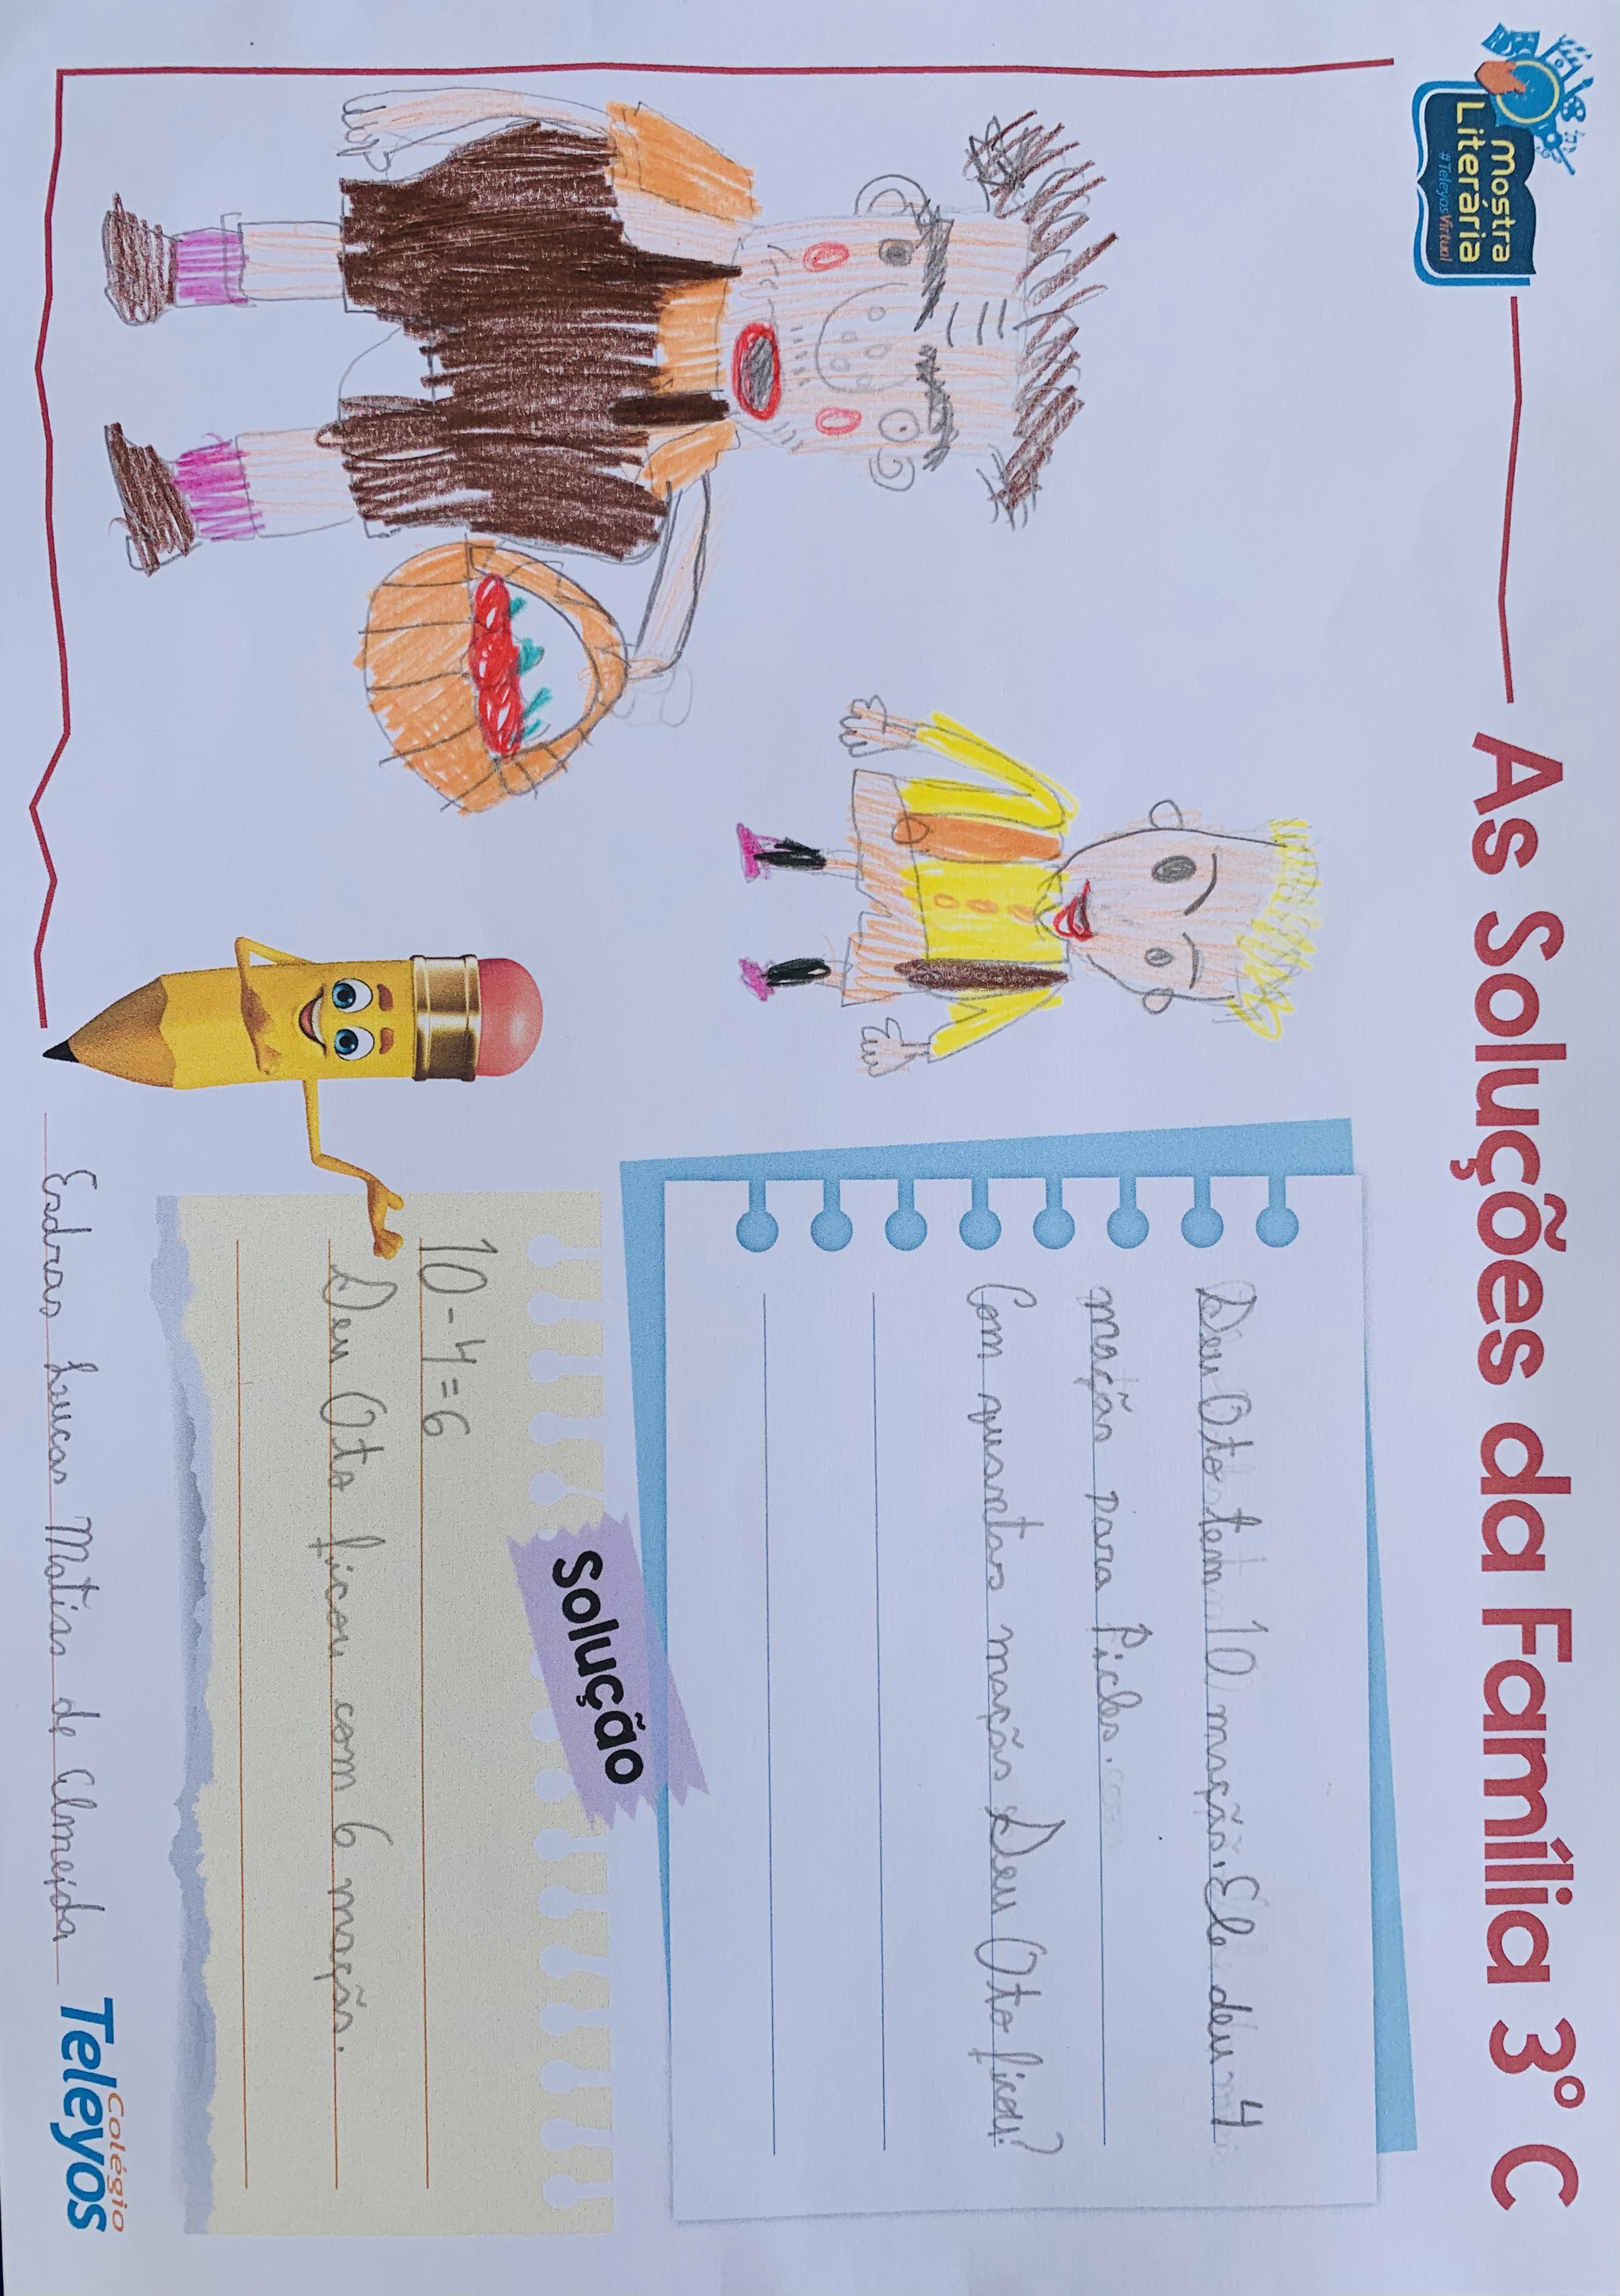 Mostra
Literária
#TeleyosVirtual
As Soluções da Família 3º C
Seu Oto tem 10 maçãs. Ele deu 4
maçãs para Picles.
Com quantas maçãs Seu Oto ficou?
Solução
10-4=6
Seu Oto ficou com 6 maçãs.
Esdras Lucas Matias de Almeida
Colégio
Teleyos